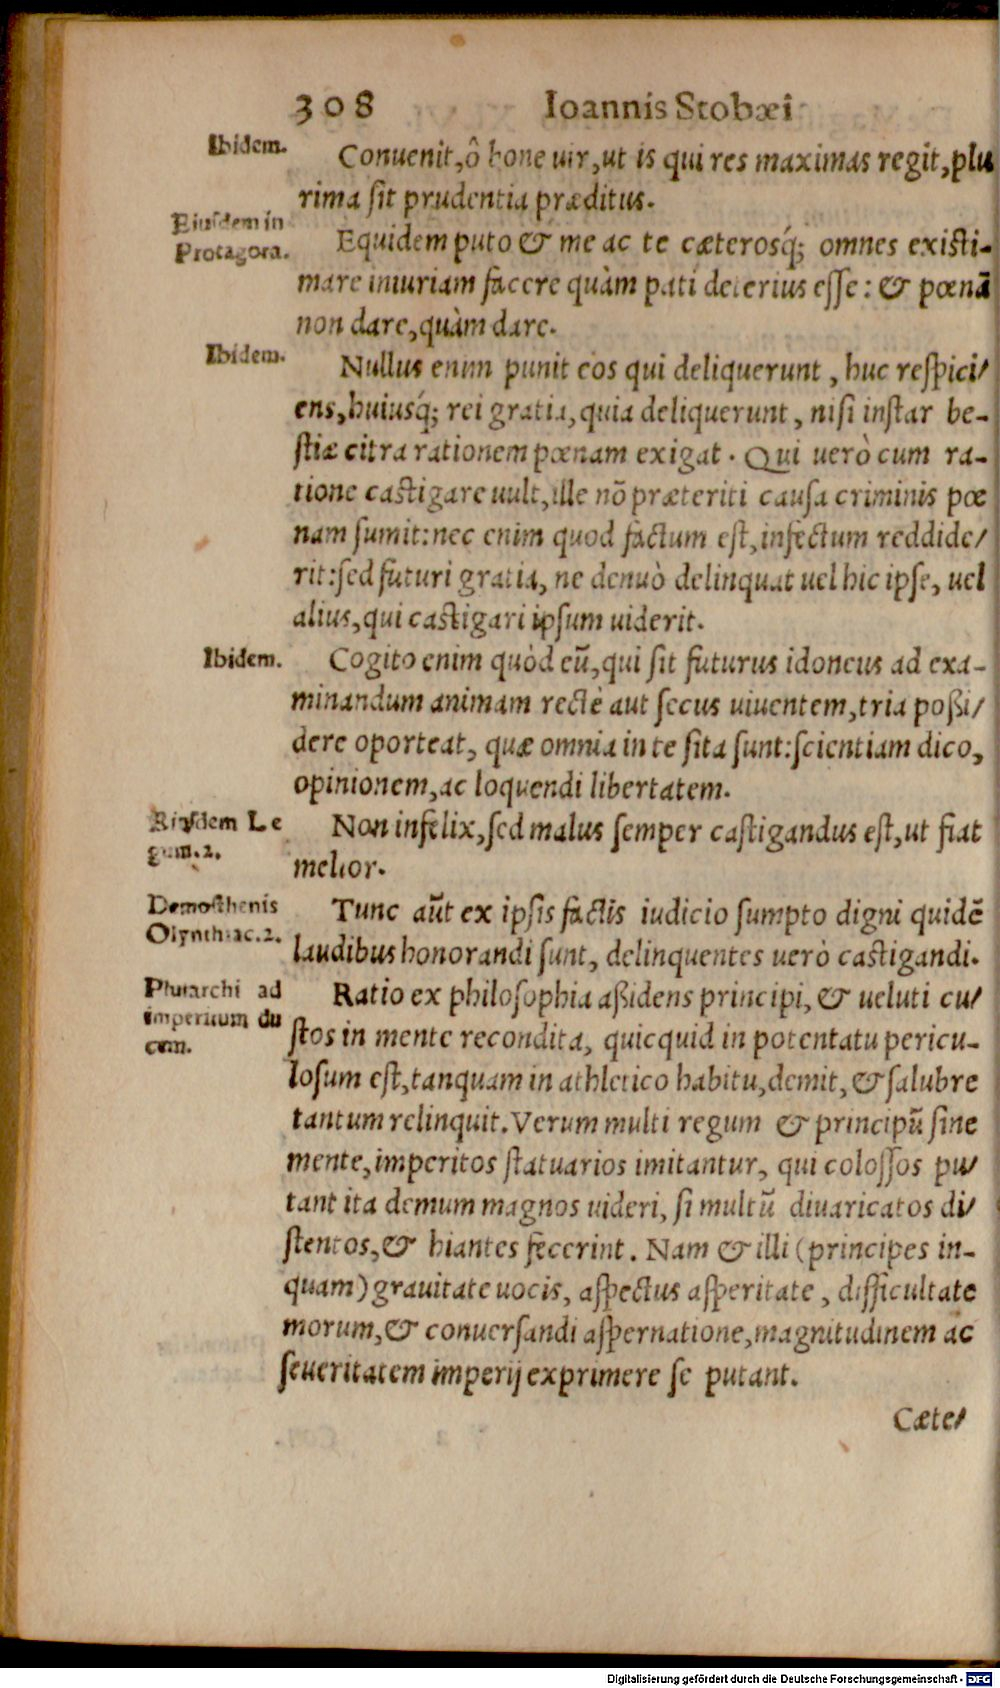 308 Ioannis Stobæi
Ibidem.
Conuenit, ô bone uir, ut is qui res maximas regit, plu
rima sit prudentia præditus.
Eiusdem in
Protagora.
Equidem puto & me ac te cæterosq́; omnes existi-
mare iniuriam facere quàm pati deterius esse: & pœnã
non dare, quàm dare.
Ibidem.
Nullus enim punit eos qui deliquerunt, huc respici/
ens, huiusq́; rei gratia, quia deliquerunt, nisi instar be-
stiæ citra rationem pœnam exigat. Qui uerò cum ra-
tione castigare uult, ille nõ præteriti causa criminis pœ
nam sumit: nec enim quod factum est, infectum reddide/
rit: sed futuri gratia, ne denuò delinquat uel hic ipse, uel
alius, qui castigari ipsum uiderit.
Ibidem.
Cogito enim quòd eũ, qui sit futurus idoneus ad exa-
minandum animam rectè aut secus uiuentem, tria poßi/
dere oporteat, quæ omnia in te sita sunt: scientiam dico,
opinionem, ac loquendi libertatem.
Eiusdem Le
gum. 2.
Non infelix, sed malus semper castigandus est, ut fiat
melior.
Demosthenis
Olynthiac. 2.
Tunc aũt ex ipsis factis iudicio sumpto digni quidẽ
laudibus honorandi sunt, delinquentes uerò castigandi.
Plutarchi ad
imperitum du
cem.
Ratio ex philosophia aßidens principi, & ueluti cu/
stos in mente recondita, quicquid in potentatu pericu-
losum est, tanquam in athletico habitu, demit, & salubre
tantum relinquit. Verum multi regum & principũ sine
mente, imperitos statuarios imitantur, qui colossos pu/
tant ita demum magnos uideri, si multũ diuaricatos di/
stentos, & hiantes fecerint. Nam & illi (principes in-
quam) grauitate uocis, aspectus asperitate, difficultate
morum, & conuersandi aspernatione, magnitudinem ac
seueritatem imperij exprimere se putant.
Cæte/
Digitalisierung gefördert durch die Deutsche Forschungsgemeinschaft - DFG